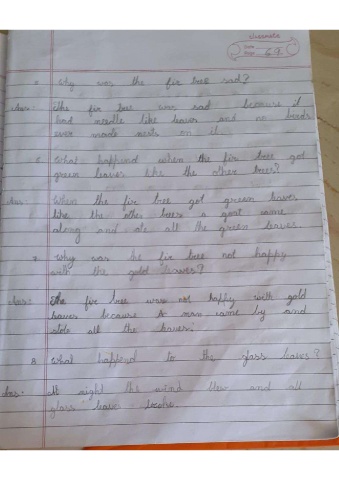 classmate
Date
Page 69
Why was the fir tree sad?
Ans- The fir tree was sad because it
had needle like leaves and no birds
ever made nests on it.
What happend when the fir tree got
green leaves like the other trees?
Ans- When the fir tree got green leaves
like the other trees a goat came
along and ate all the green leaves.
Why was the fir tree not happy
with the gold leaves?
Ans- The fir tree was not happy with gold
leaves because A man came by and
stole all the leaves.
What happend to the glass leaves?
Ans- At night the wind blow and all
glass leave broke.